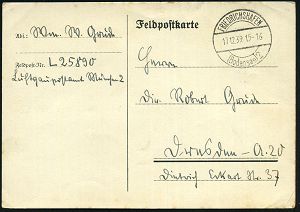 Feldpostkarte
FRIEDRICHSHAFEN
17.12.39.15-16
(Bodensee) 2
Abs.: Wm. W. Grude
Feldpost-Nr. L 25890
Luftgaupostamt München 2
Herrn
Dir. Robert Grude
Dresden-A. 20
Dietrich Eckart Str. 37